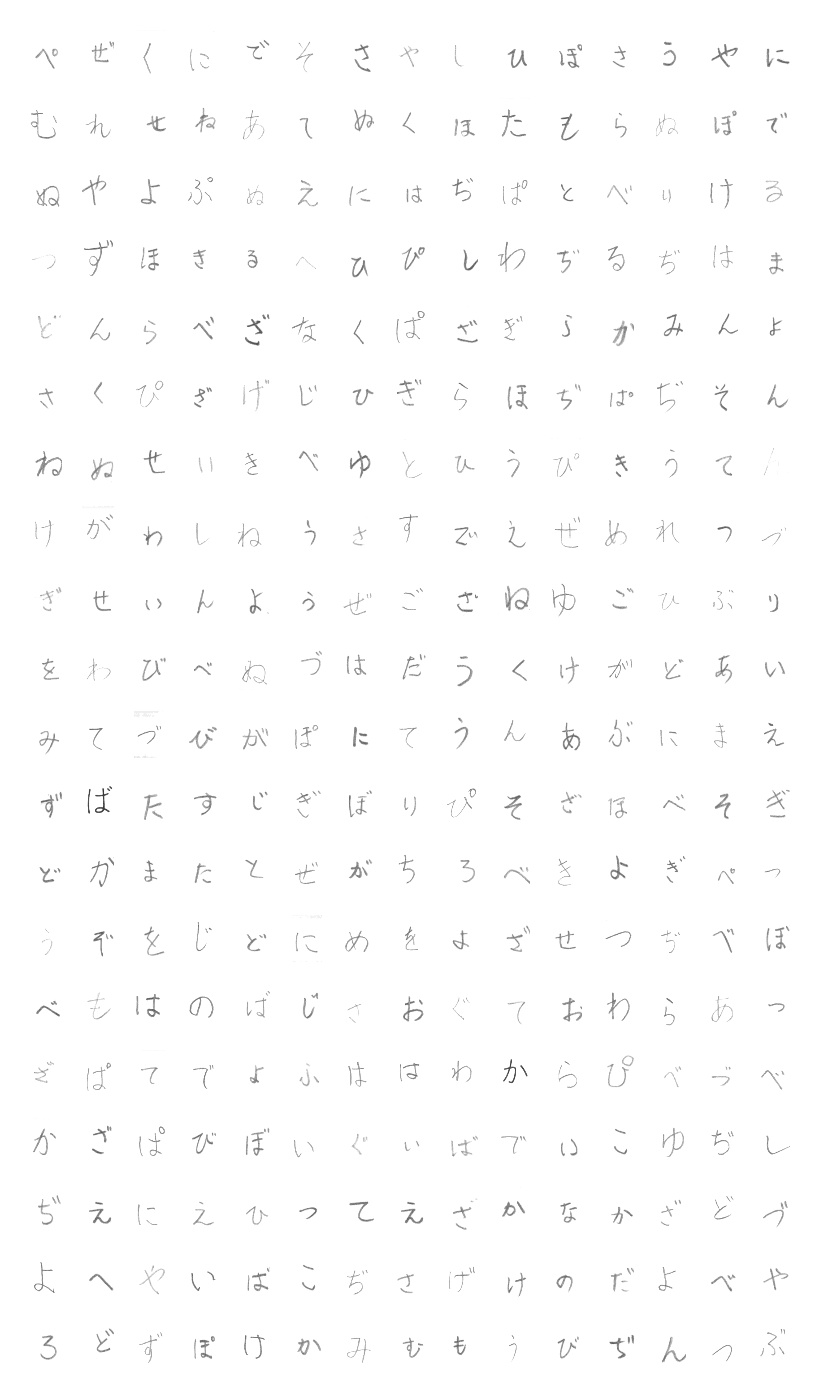 ぺぜくにでそさやしひぽさうやに
むれせねあてぬくほたもらぬぽで
ぬやよぷぬえにはぢぱとべりける
つずほきるへひぴしわぢるぢはま
どんらべざなくぱざぎらかみんよ
さくぴざげじひぎらほぢぱぢそん
ねぬせいきべゆとひうぴきうてん
けがわしねうさすでえぜめれつづ
ぎせいんようぜござねゆごひぶり
をわびべぬづはだうくけがどあい
みてづびがぽにてうんあぶにまえ
ずばたすじぎぼりぴそざほべそぎ
どかまたとぜがちろべきよぎぺっ
うぞをじどにめをよざせつぢべぼ
べもはのばじさおぐておわらあっ
ざぱてでよふははわからぴべづべ
かざぱびぼいぐいばでいこゆぢし
ぢえにえひってえざかなかざどづ
よへやいばこぢさげけのだよべや
ろどずぽけかみむもうびぢんっぶ